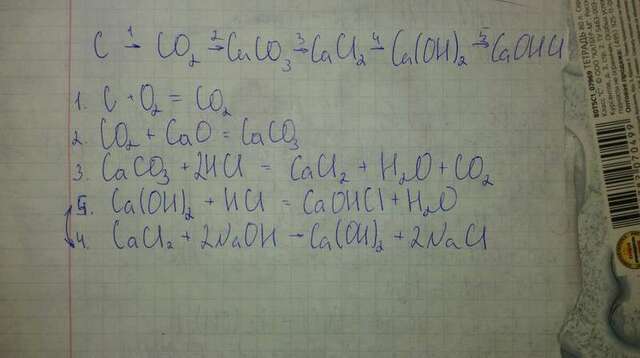 C 1→ CO₂ 2→ CaCO₃ 3→ CaCl₂ 4→ Ca(OH)₂ 5→ CaOHCl
1. C + O₂ = CO₂
2. CO₂ + CaO = CaCO₃
3. CaCO₃ + 2HCl = CaCl₂ + H₂O + CO₂
5. Ca(OH)₂ + HCl = CaOHCl + H₂O
4. CaCl₂ + 2NaOH → Ca(OH)₂ + 2NaCl
80TSC1 07969 ТЕТРАДЬ